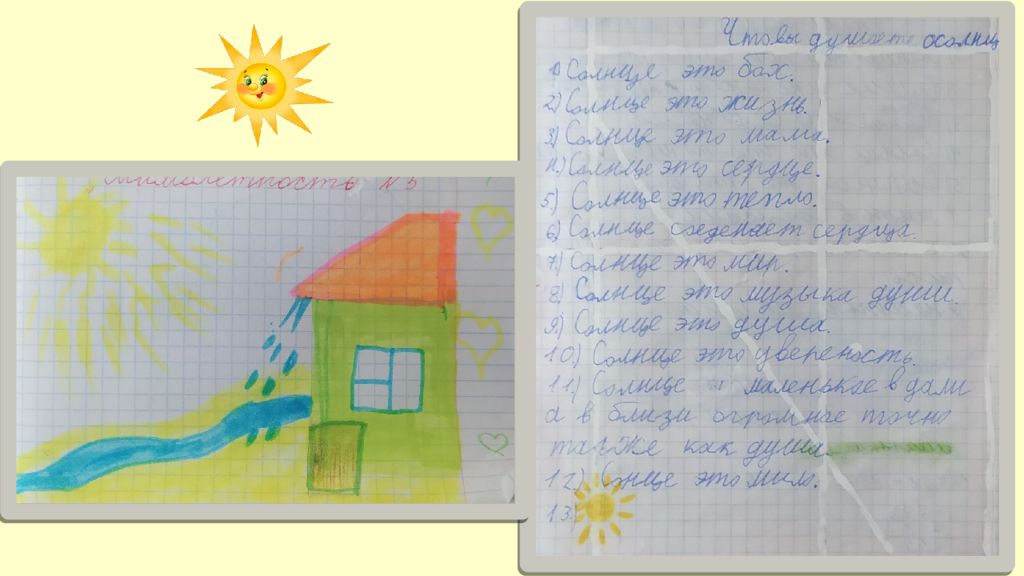 „Мимолетность № 5
Что вы думаете о солнце
1) Солнце это бах.
2) Солнце это жизнь.
3) Солнце это мама.
4) Солнце это сердце.
5) Солнце это тепло.
6) Солнце соеденяет сердца.
7) Солнце это мир.
8) Солнце это музыка души.
9) Солнце это душа.
10) Солнце это увереность.
11) Солнце маленькое в дали
а в близи огромное точно
также как душа
12) Сонце это мило.
13)